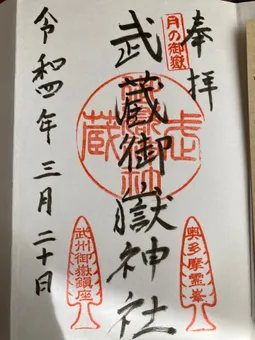 奉拝
月の御嶽
武蔵御嶽神社
奥多摩霊峯
武州御嶽鎮座
令和四年三月二十日